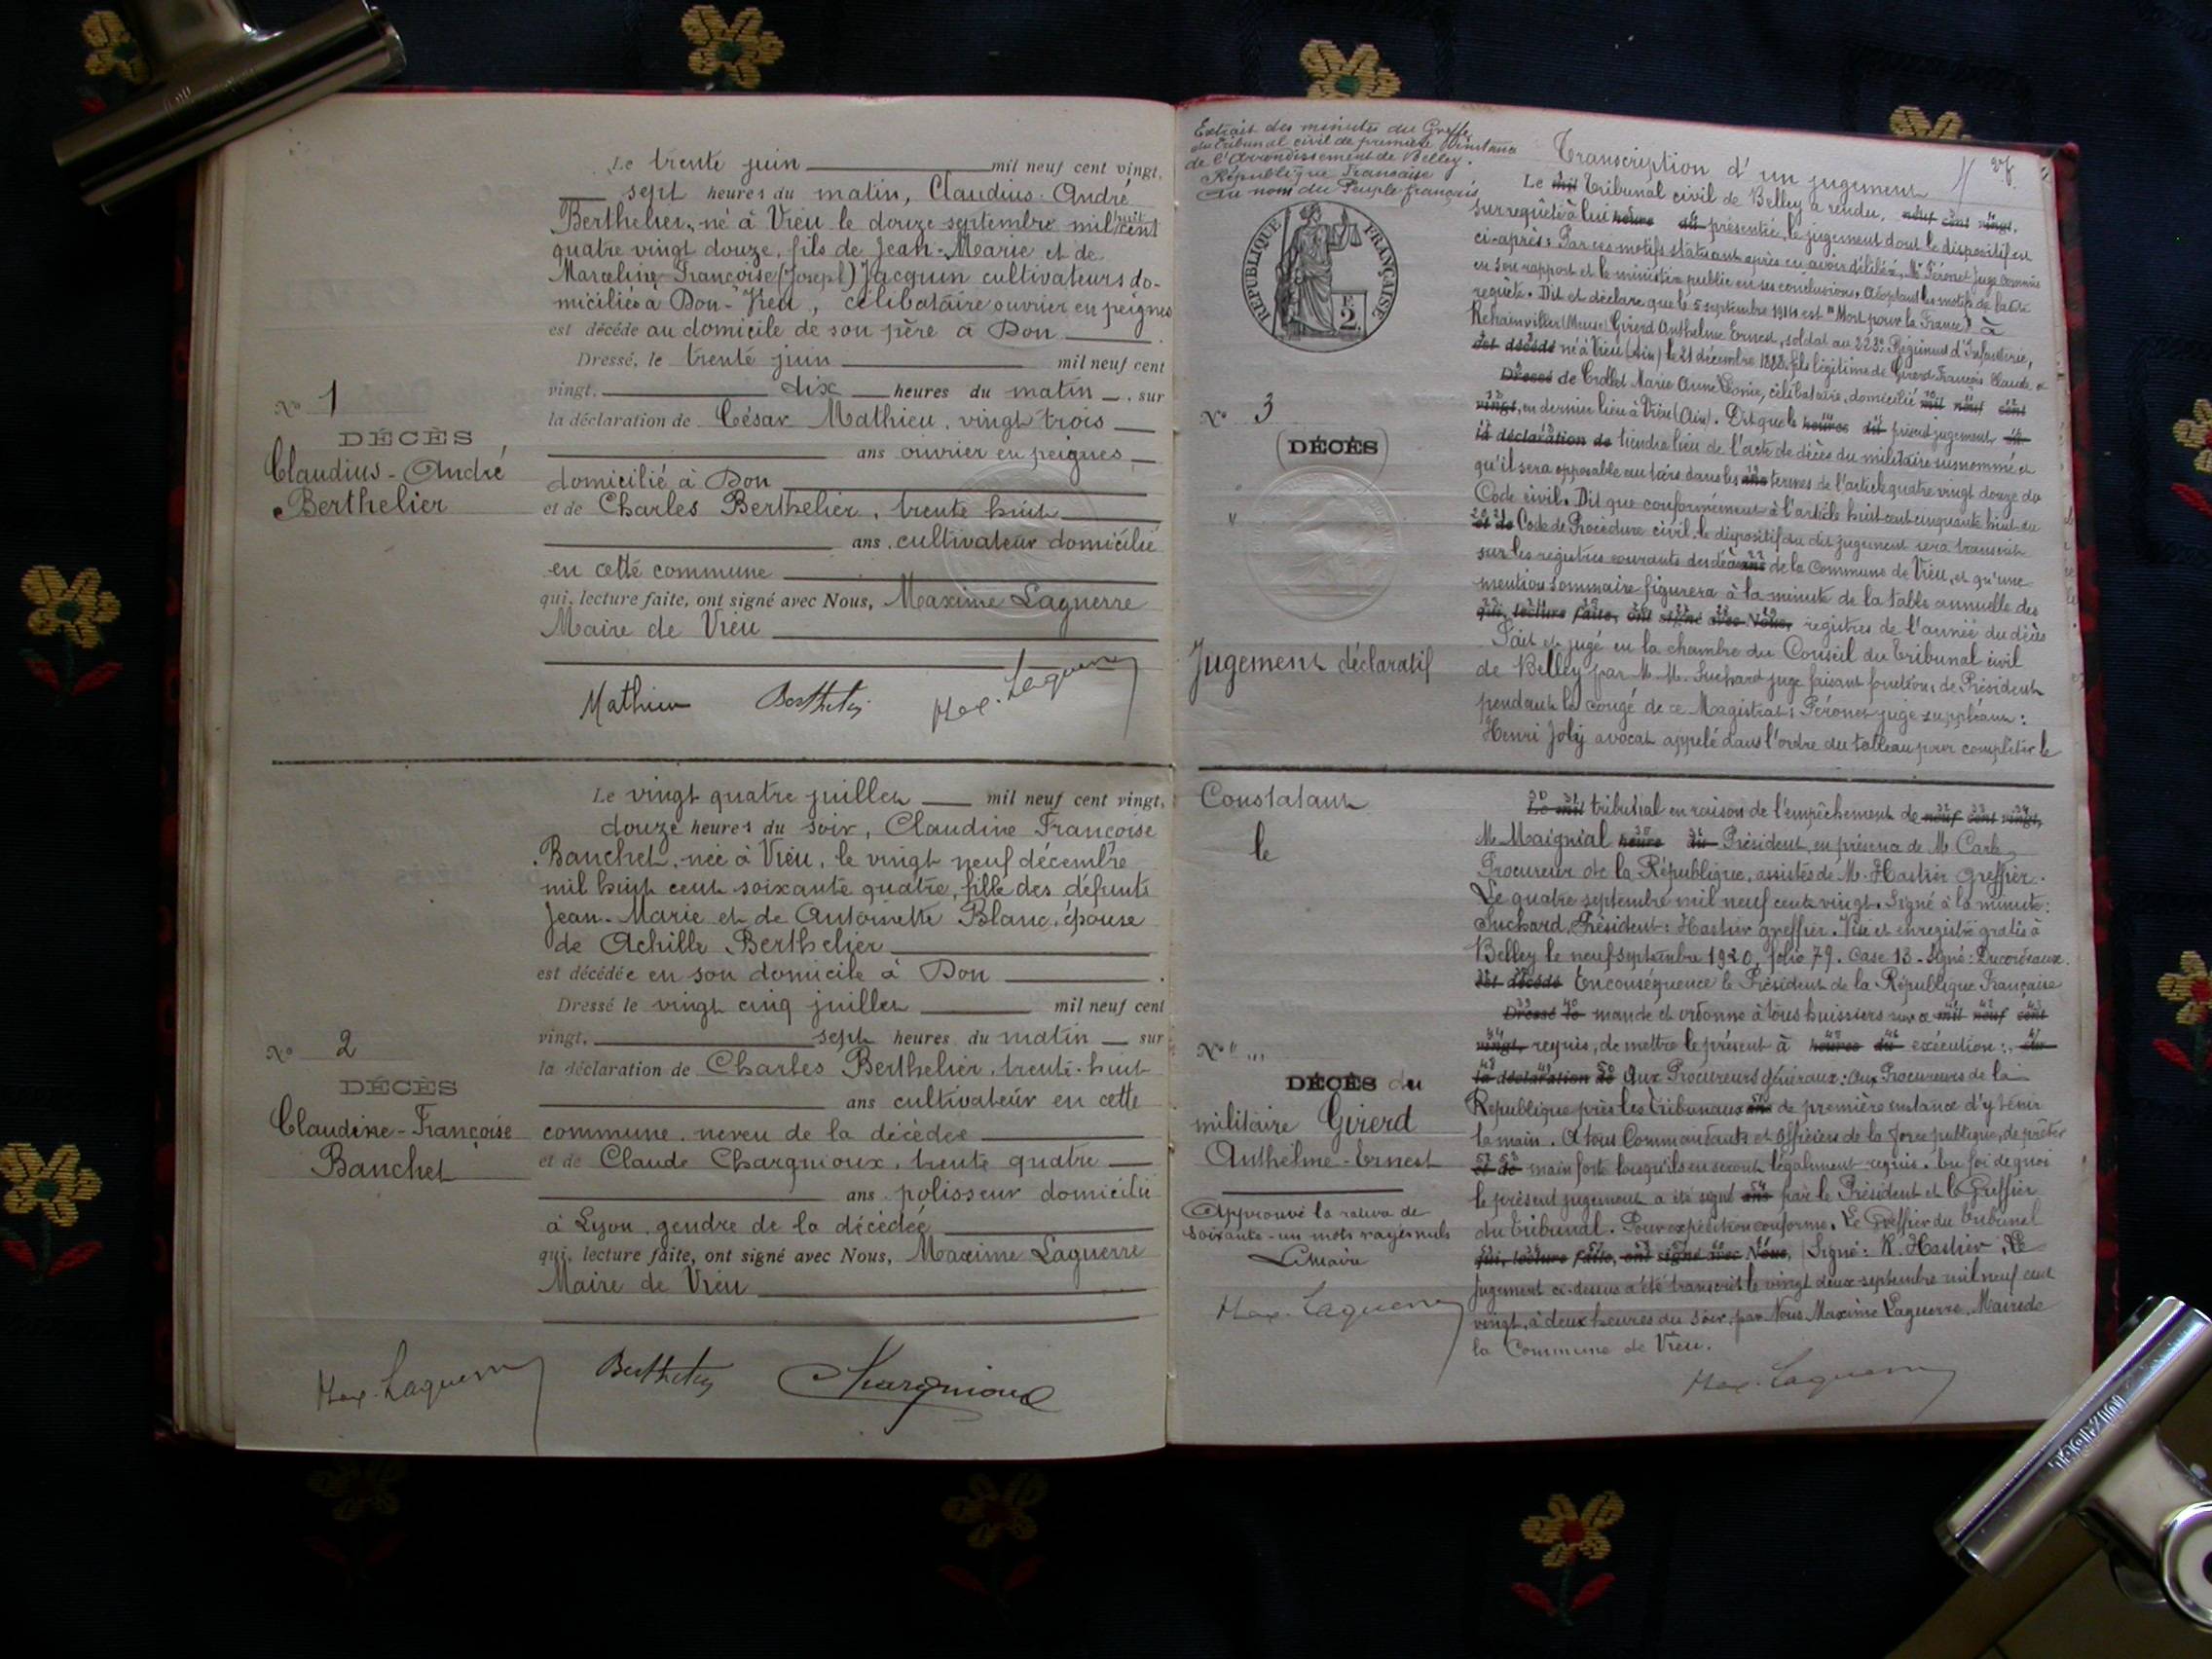 Le trente juin mil neuf cent vingt,
sept heures du matin, Claudius-André
Berthelier, né à Vieu le douze septembre mil huit cent
quatre vingt douze, fils de Jean-Marie et de
Marceline Françoise (Joseph) Jacquin cultivateurs do-
miciliés à Don-Vieu, célibataire ouvrier en peignes
est décédé au domicile de son père à Don
Dressé, le trente juin mil neuf cent
vingt, dix heures du matin, sur
la déclaration de César Mathieu, vingt trois
ans ouvrier en peignes
domicilié à Don
et de Charles Berthelier, trente huit
ans, cultivateur domicilié
en cette commune
qui, lecture faite, ont signé avec Nous, Maxime Laguerre
Maire de Vieu
N° 1
DÉCÈS
Claudius-André
Berthelier
Mathieu Berthelier Max. Laguerre
Le vingt quatre juillet mil neuf cent vingt,
douze heures du soir, Claudine Françoise
Banchet, née à Vieu, le vingt neuf décembre
mil huit cent soixante quatre, fille des défunts
Jean-Marie et de Antoinette Blanc, épouse
de Achille Berthelier
est décédée en son domicile à Don
Dressé le vingt cinq juillet mil neuf cent
vingt, sept heures du matin sur
la déclaration de Charles Berthelier, trente-huit
ans cultivateur en cette
commune, neveu de la décédée
et de Claude Chargnioux, trente quatre
ans polisseur domicilié
à Lyon, gendre de la décédée
qui, lecture faite, ont signé avec Nous, Maxime Laguerre
Maire de Vieu
N° 2
DÉCÈS
Claudine-Françoise
Banchet
Max. Laguerre Berthelier Chargnioux
Extrait des minutes du Greffe
du tribunal civil de première Instance
de l'Arrondissement de Belley.
République Française
Au nom du Peuple français
RÉPUBLIQUE FRANÇAISE
E
2
N° 3
(DÉCÈS)
Jugement déclaratif
Constatant
le
N° " "
DÉCÈS du
militaire Girerd
Anthelme-Ernest
Approuvé la rature de
soixante-un mots rayés nuls
Le maire
Max. Laguerre
Transcription d'un jugement
Le mil Tribunal civil de Belley a rendu, neuf cent vingt,
sur requête à lui heure du présentée, le jugement dont le dispositif est
ci-après: Par ces motifs statuant après en avoir délibéré, Mr Péronet Juge commis
en son rapport et le ministère public en ses conclusions. Adoptant les motifs de la dite
requête. Dit et déclare que le 5 septembre 1914 est "Mort pour la France" à
Rehainviller (Meuse) Girerd Anthelme Ernest, soldat au 223e Régiment d'Infanterie,
est décédé né à Vieu (Ain) le 21 décembre 1888, fils légitime de Girerd François Claude et
Dressé de Crollet Marie Anne Léonie, célibataire, domicilié mil neuf cent
vingt, en dernier lieu à Vieu (Ain). Dit que le heures du présent jugement, sur
la déclaration de tiendra lieu de l'acte de décès du militaire susnommé et
qu'il sera opposable aux tiers dans les ans termes de l'article quatre vingt douze du
Code civil. Dit que conformément à l'article huit cent cinquante huit du
et de Code de Procédure civil, le dispositif du dit jugement sera transcrit
sur les registres courants des décès ans de la Commune de Vieu, et qu'une
mention sommaire figurera à la minute de la table annuelle des
qui, lecture faite, ont signé avec Nous, registres de l'année du décès
Fait et jugé en la chambre du Conseil du tribunal civil
de Belley par M. M. Suchard juge faisant fonctions de Président
pendant le congé de ce Magistrat: Péronet juge suppléant:
Henri Joly avocat appelé dans l'ordre du tableau pour compléter le
Le mil tribunal en raison de l'empêchement de neuf cent vingt,
M. Maignial heure du Président, en présence de M. Carle
Procureur de la République, assistés de M. Hastier Greffier.
Le quatre septembre mil neuf cent vingt. Signé à la minute:
Suchard, Président: Hastier greffier. Visé et enregistré gratis à
Belley le neuf septembre 1920, folio 79. Case 13 - Signé: Ducordeaux.
est décédé En conséquence le Président de la République Française
Dressé le mande et ordonne à tous huissiers sur ce mil neuf cent
vingt, requis, de mettre le présent à heures du exécution: sur
la déclaration de Aux Procureurs généraux: Aux Procureurs de la
République près les tribunaux ans de première instance d'y tenir
la main. A tous Commandants et Officiers de la force publique, de prêter
et de main forte lorsqu'ils en seront légalement requis. En foi de quoi
le présent jugement a été signé ans par le Président et le Greffier
du tribunal. Pour expédition conforme. Le Greffier du tribunal
qui, lecture faite, ont signé avec Nous, Signé: R. Hastier. Le
jugement ci-dessus a été transcrit le vingt deux septembre mil neuf cent
vingt, à deux heures du soir, par Nous Maxime Laguerre, Maire de
la Commune de Vieu.
Max. Laguerre